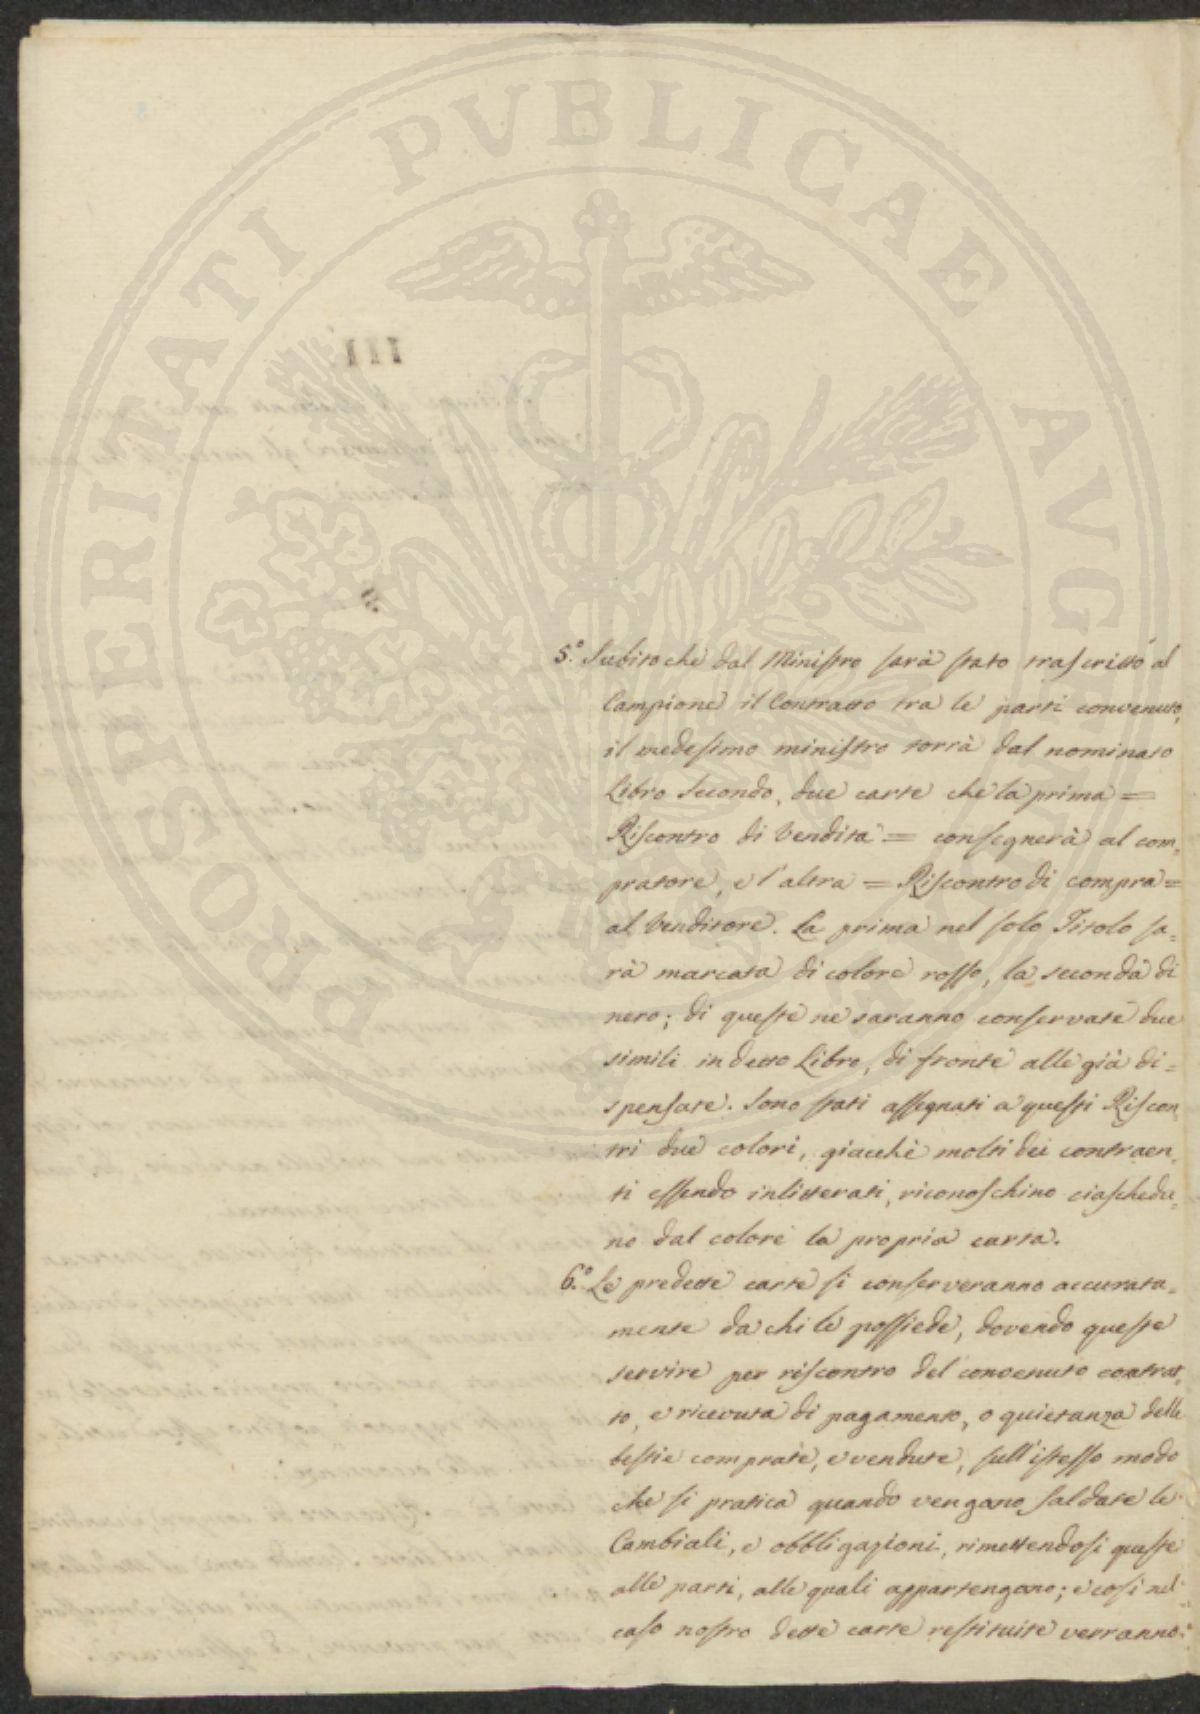 PROSPERITATI PUBLICAE AUG
5.º Subito che dal Ministro sarà stato trascritto al
Campione il Contratto tra le parti convenuto,
il medesimo ministro torrà dal nominato
Libro Secondo, due carte che la prima =
Riscontro di Vendita = consegnerà al com=
pratore, e l'altra = Riscontro di compra =
al Venditore. La prima nel solo Titolo sa=
rà marcata di colore rosso, la seconda di
nero; di queste ne saranno conservate due
simili in detto Libro, di fronte alle già di=
spensate. Sono stati assegnati a questi Riscon=
tri due colori, giacchè molti dei contraen=
ti essendo inlitterati, riconoschino ciaschedu=
no dal colore la propria carta.
6.º Le predette carte si conserveranno accurata=
mente da chi le possiede, dovendo queste
servire per riscontro del convenuto contrat=
to, e ricevuta di pagamento, o quietanza delle
bestie comprate, e vendute, sull'istesso modo
che si pratica quando vengano saldate le
Cambiali, e obbligazioni, rimettendosi queste
alle parti, alle quali appartengano; e così nel
caso nostro dette carte restituite verranno